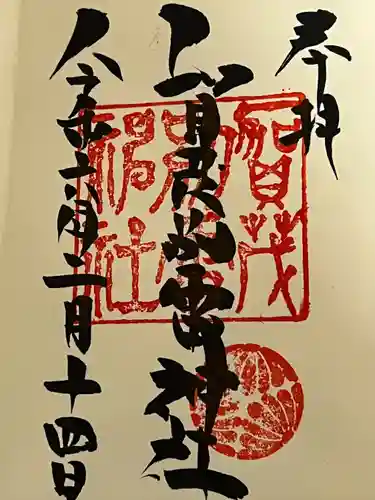 奉拝
賀茂別雷神社
令和六年二月十四日
賀茂
別雷
神社